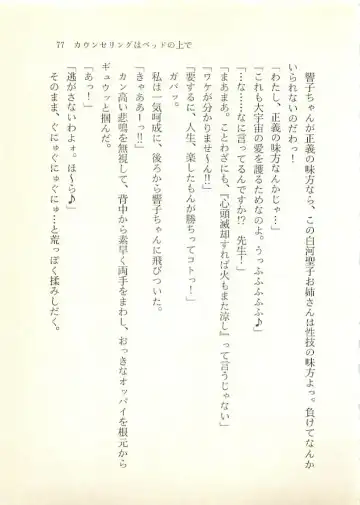 77　カウンセリングはベッドの上で
響子ちゃんが正義の味方なら、この白河聖子お姉さんは性技の味方よっ。負けてなんか
いられないのだわっ！
「わたし、正義の味方なんかじゃ…」
「これも大宇宙の愛を護るためなのよ。うっふふふふ♪」
「な……なに言ってるんですか!?　先生！」
「まあまあ。ことわざにも、『心頭滅却すれば火もまた涼し』って言うじゃない」
「ワケが分かりませ〜ん!!」
「要するに、人生、楽したもんが勝ちってコトっ！」
ガバッ。
私は一気呵成に、後ろから響子ちゃんに飛びついた。
「きゃああーっ!!」
カン高い悲鳴を無視して、背中から素早く両手をまわし、おっきなオッパイを根元から
ギュウッと掴んだ。
「あっ！」
「逃がさないわよォ。ほ〜ら♪」
そのまま、ぐにゅぐにゅぐにゅ…と荒っぽく揉みしだく。